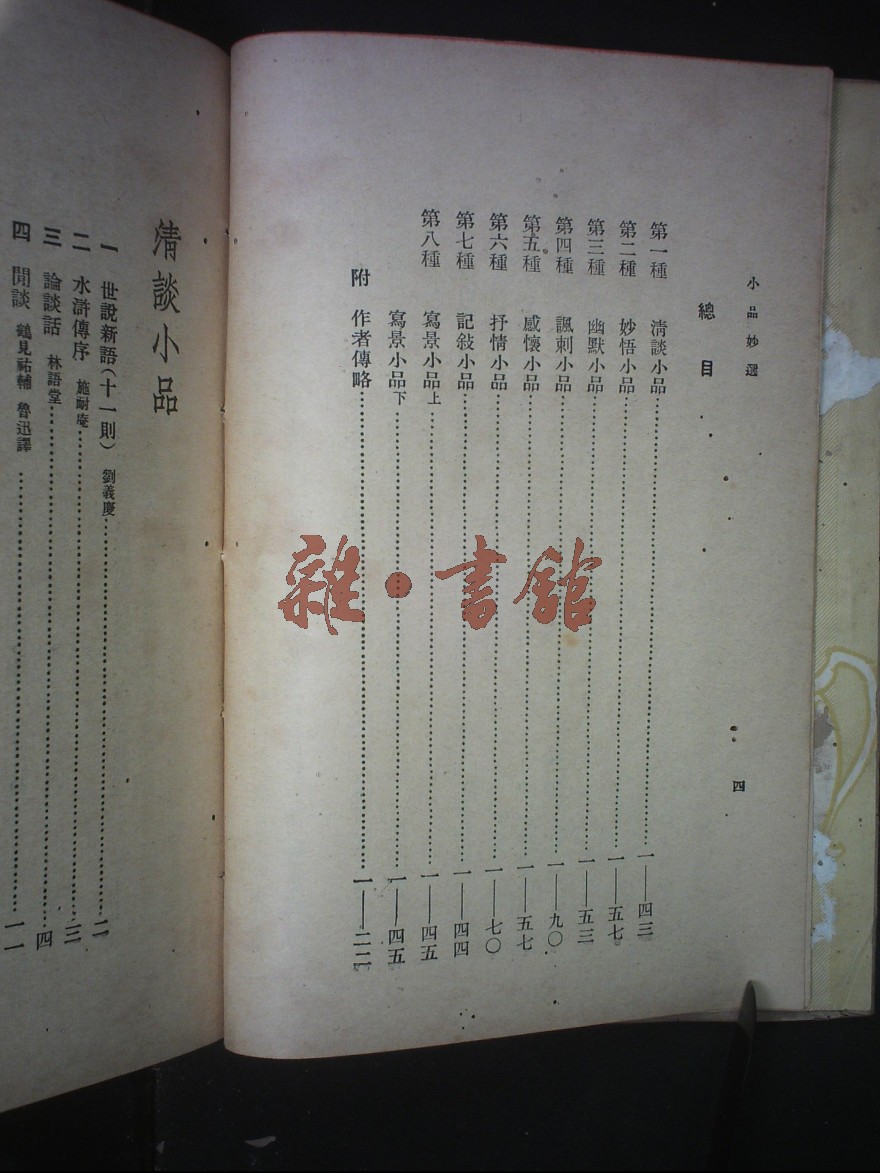 小品妙選
四
總目
第一種 清談小品 一——四三
第二種 妙悟小品 一——五七
第三種 幽默小品 一——五三
第四種 諷刺小品 一——九〇
第五種 感懷小品 一——五七
第六種 抒情小品 一——七〇
第七種 記敍小品 一——四四
第八種 寫景小品上 一——四五
寫景小品下 一——四五
附 作者傳略 一——二二
雜·書館
清談小品
一 世說新語(十一則) 劉義慶 二
二 水滸傳序 施耐庵 三
三 論談話 林語堂 四
四 閒談 鶴見祐輔 魯迅譯 一一